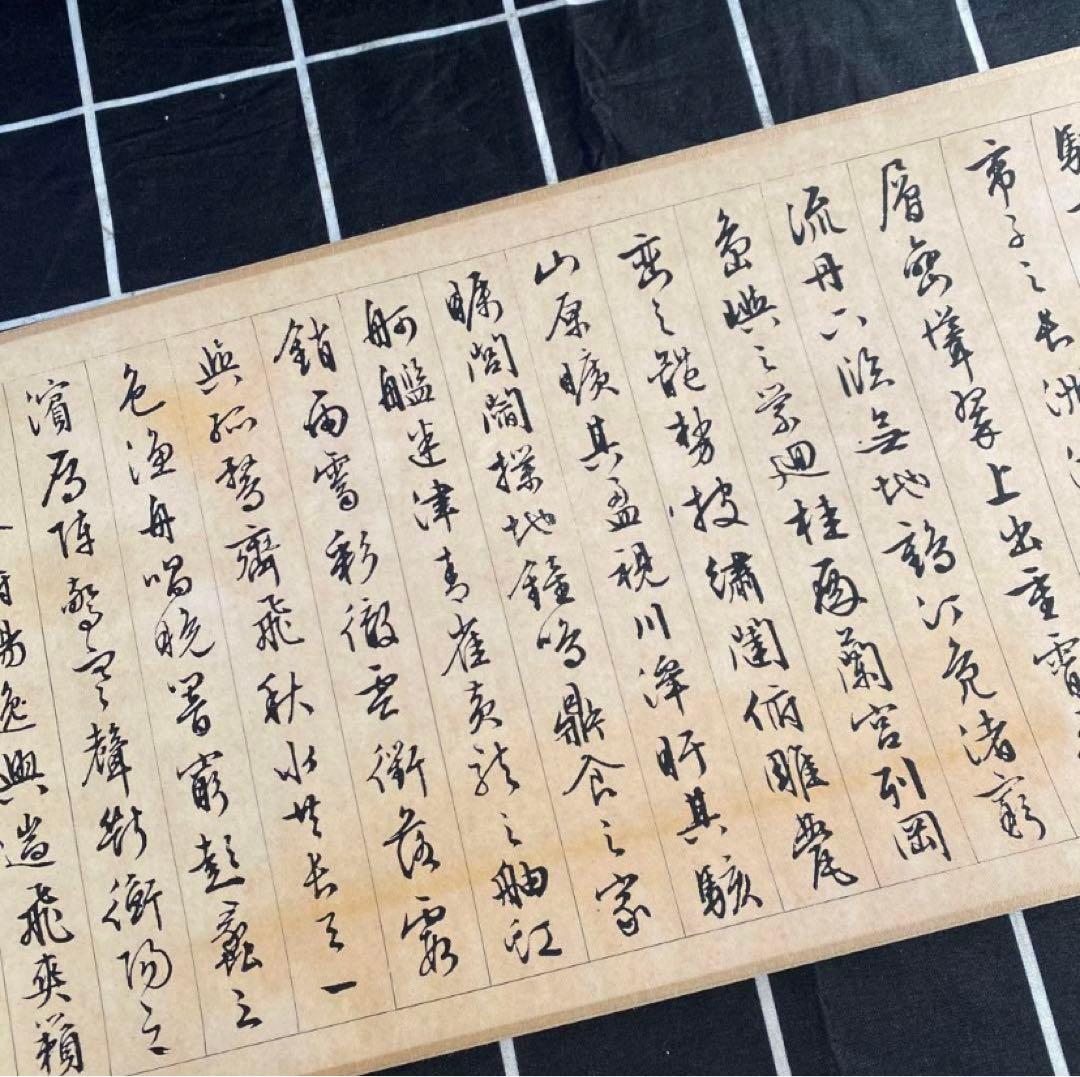 帝子之長洲
層巒聳翠上出重霄
流丹下臨無地鶴汀鳧渚窮
島嶼之縈迴桂殿蘭宮列岡
巒之體勢披繡闥俯雕甍
山原曠其盈視川澤盱其駭
矚閭閻撲地鐘鳴鼎食之家
舸艦迷津青雀黃龍之舳虹
銷雨霽彩徹雲衢落霞
與孤鶩齊飛秋水共長天一
色漁舟唱晚響窮彭蠡之
濱雁陣驚寒聲斷衡陽之
俯暢逸興遄飛爽籟